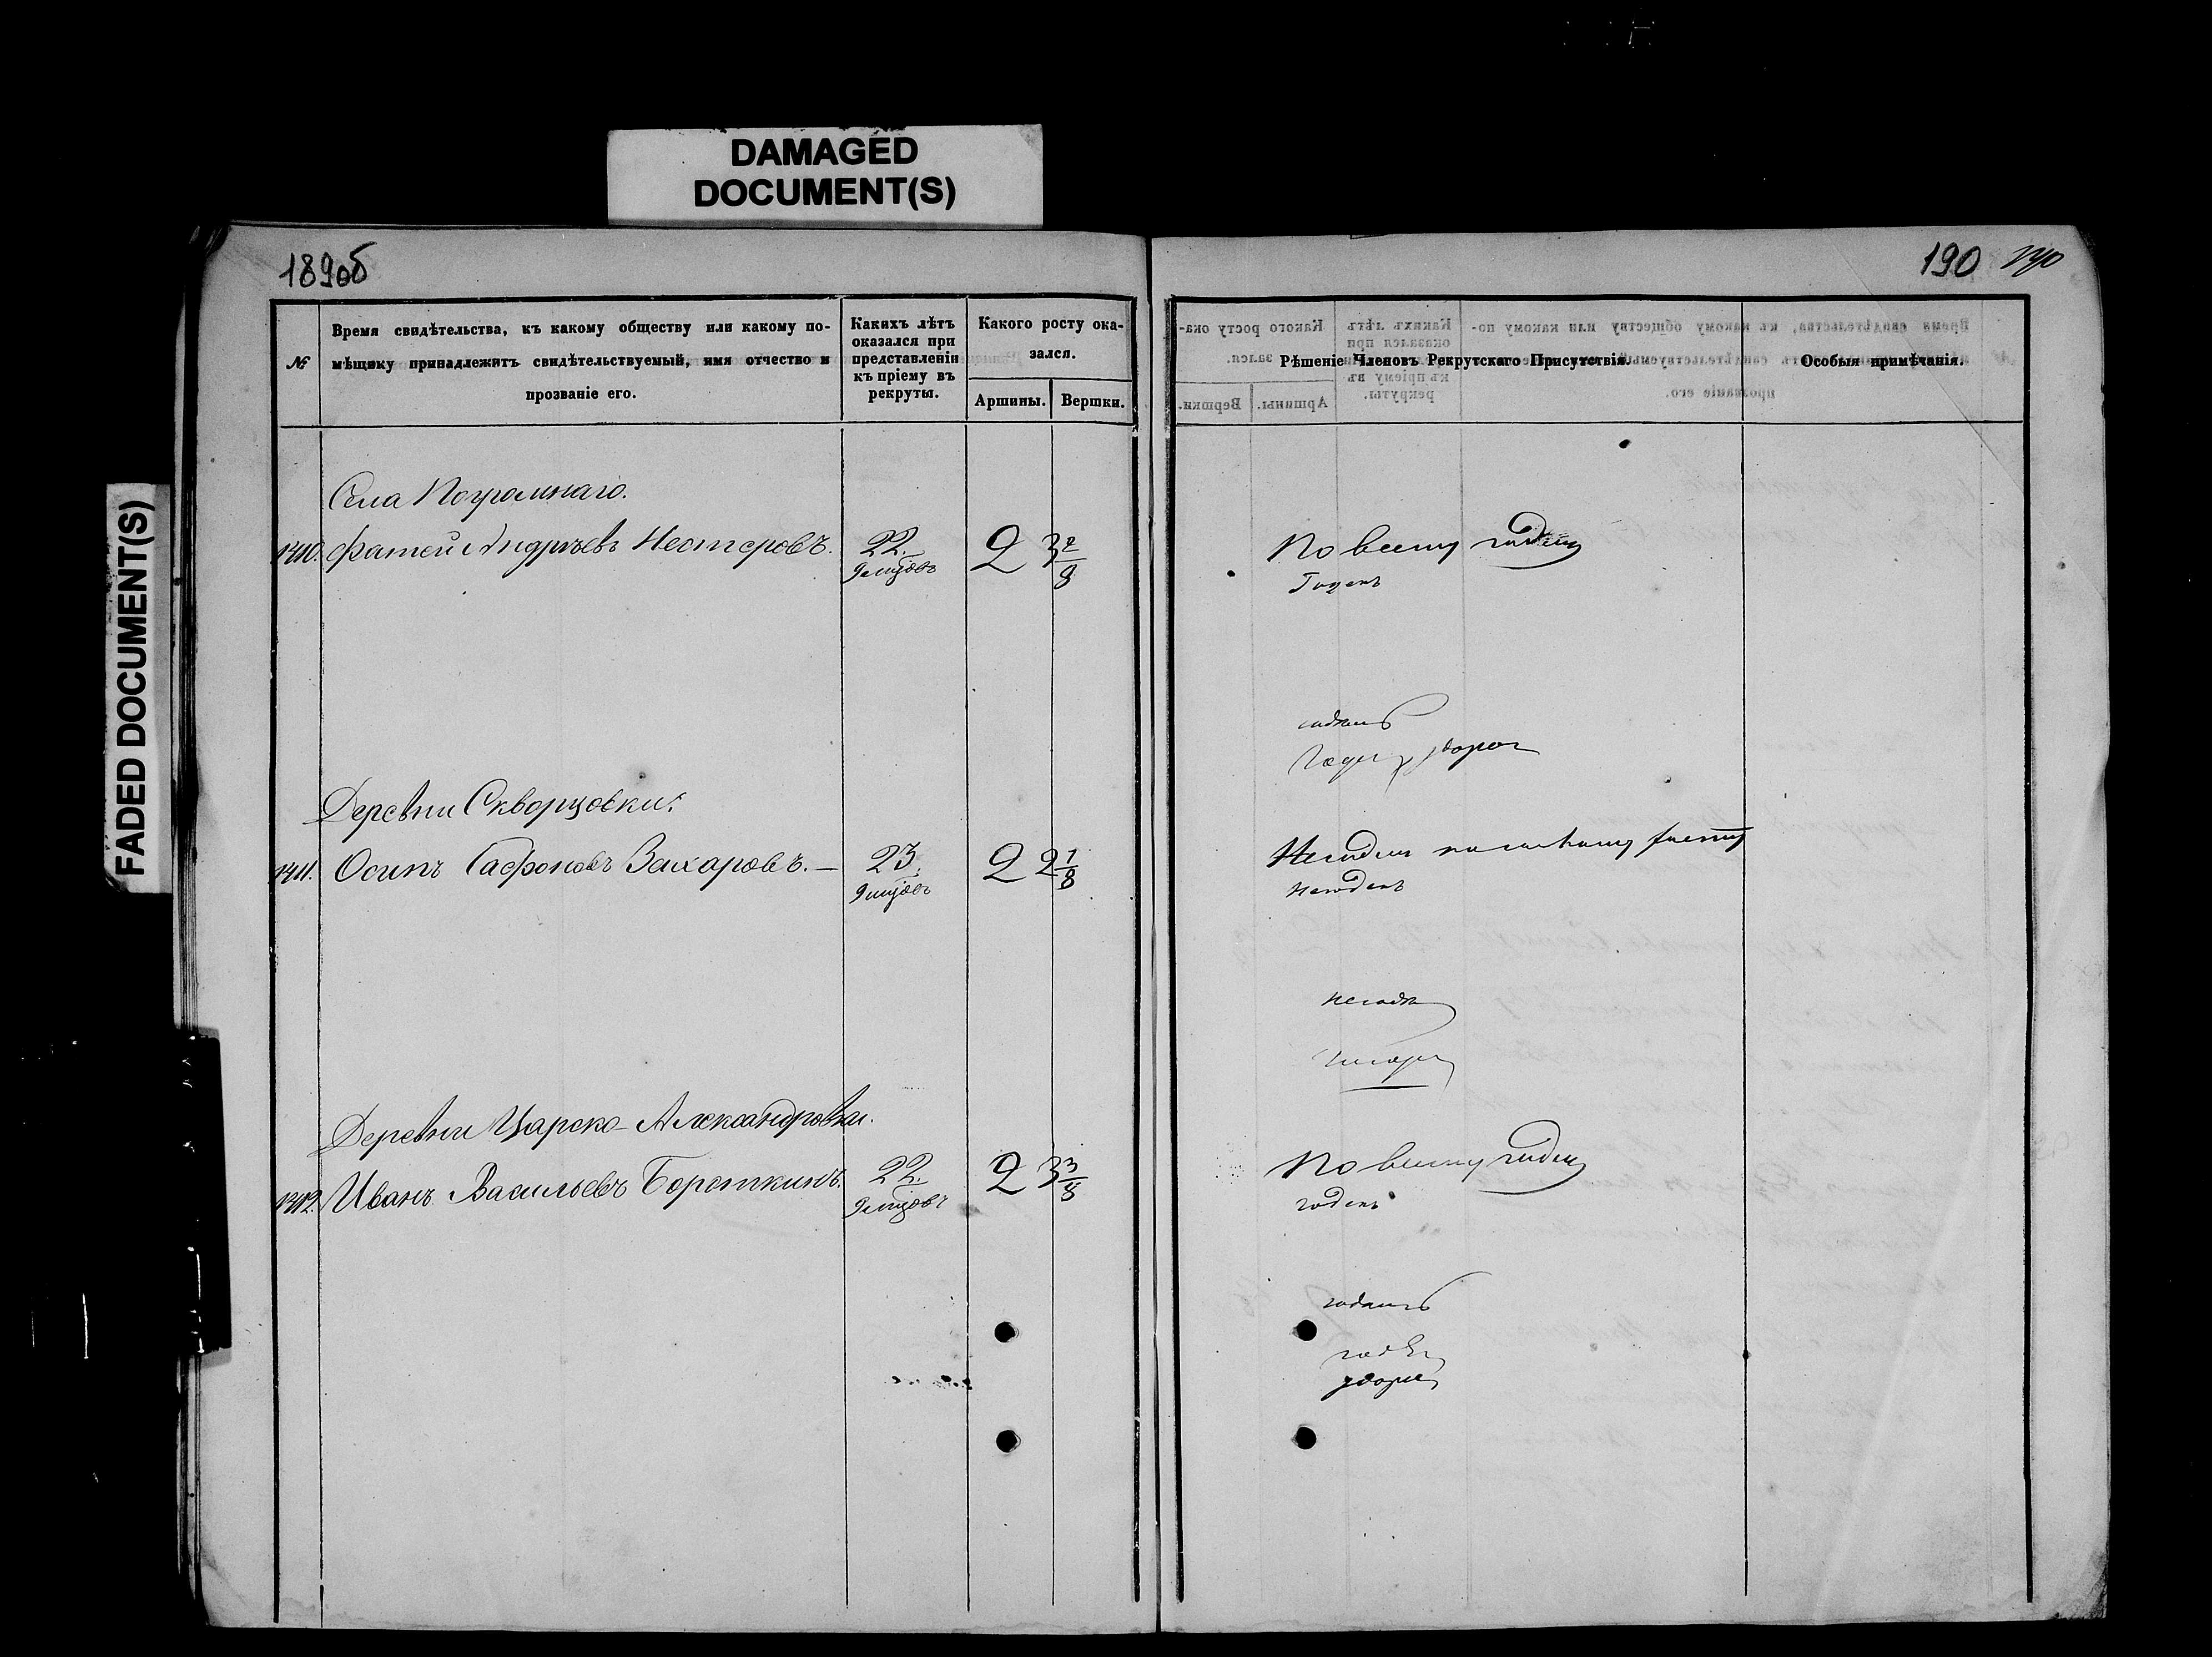 DAMAGED
DOCUMENT(S)
FADED DOCUMENT(S)
189об
№
Время свидѣтельства, къ какому обществу или какому по-
мѣщику принадлежитъ свидѣтельствуемый, имя отчество и
прозваніе его.
Какихъ лѣтъ
оказался при
представленіи
къ пріему въ
рекруты.
Какого росту ока-
зался.
Аршины.
Вершки.
Села Погромнаго.
1410. Фатей Андрѣевъ Нестеровъ. 22. 2 3 2/8
9 мѣсцовъ
Деревни Скворцовки.
1411. Осипъ Гафоновъ Захаровъ. — 23. 2 2 1/8
9 мѣсцовъ
Деревни Царско-Александровки.
1412. Иванъ Васильевъ Береткинъ. 22. 2 3 3/8
9 мѣсцовъ
190
Рѣшеніе Членовъ Рекрутскаго Присутствія.
Особыя примѣчанія.
По всему годенъ
Годенъ
годенъ
Негоденъ по малому росту
негоденъ
негоденъ
По всему годенъ
годенъ
годенъ
годенъ